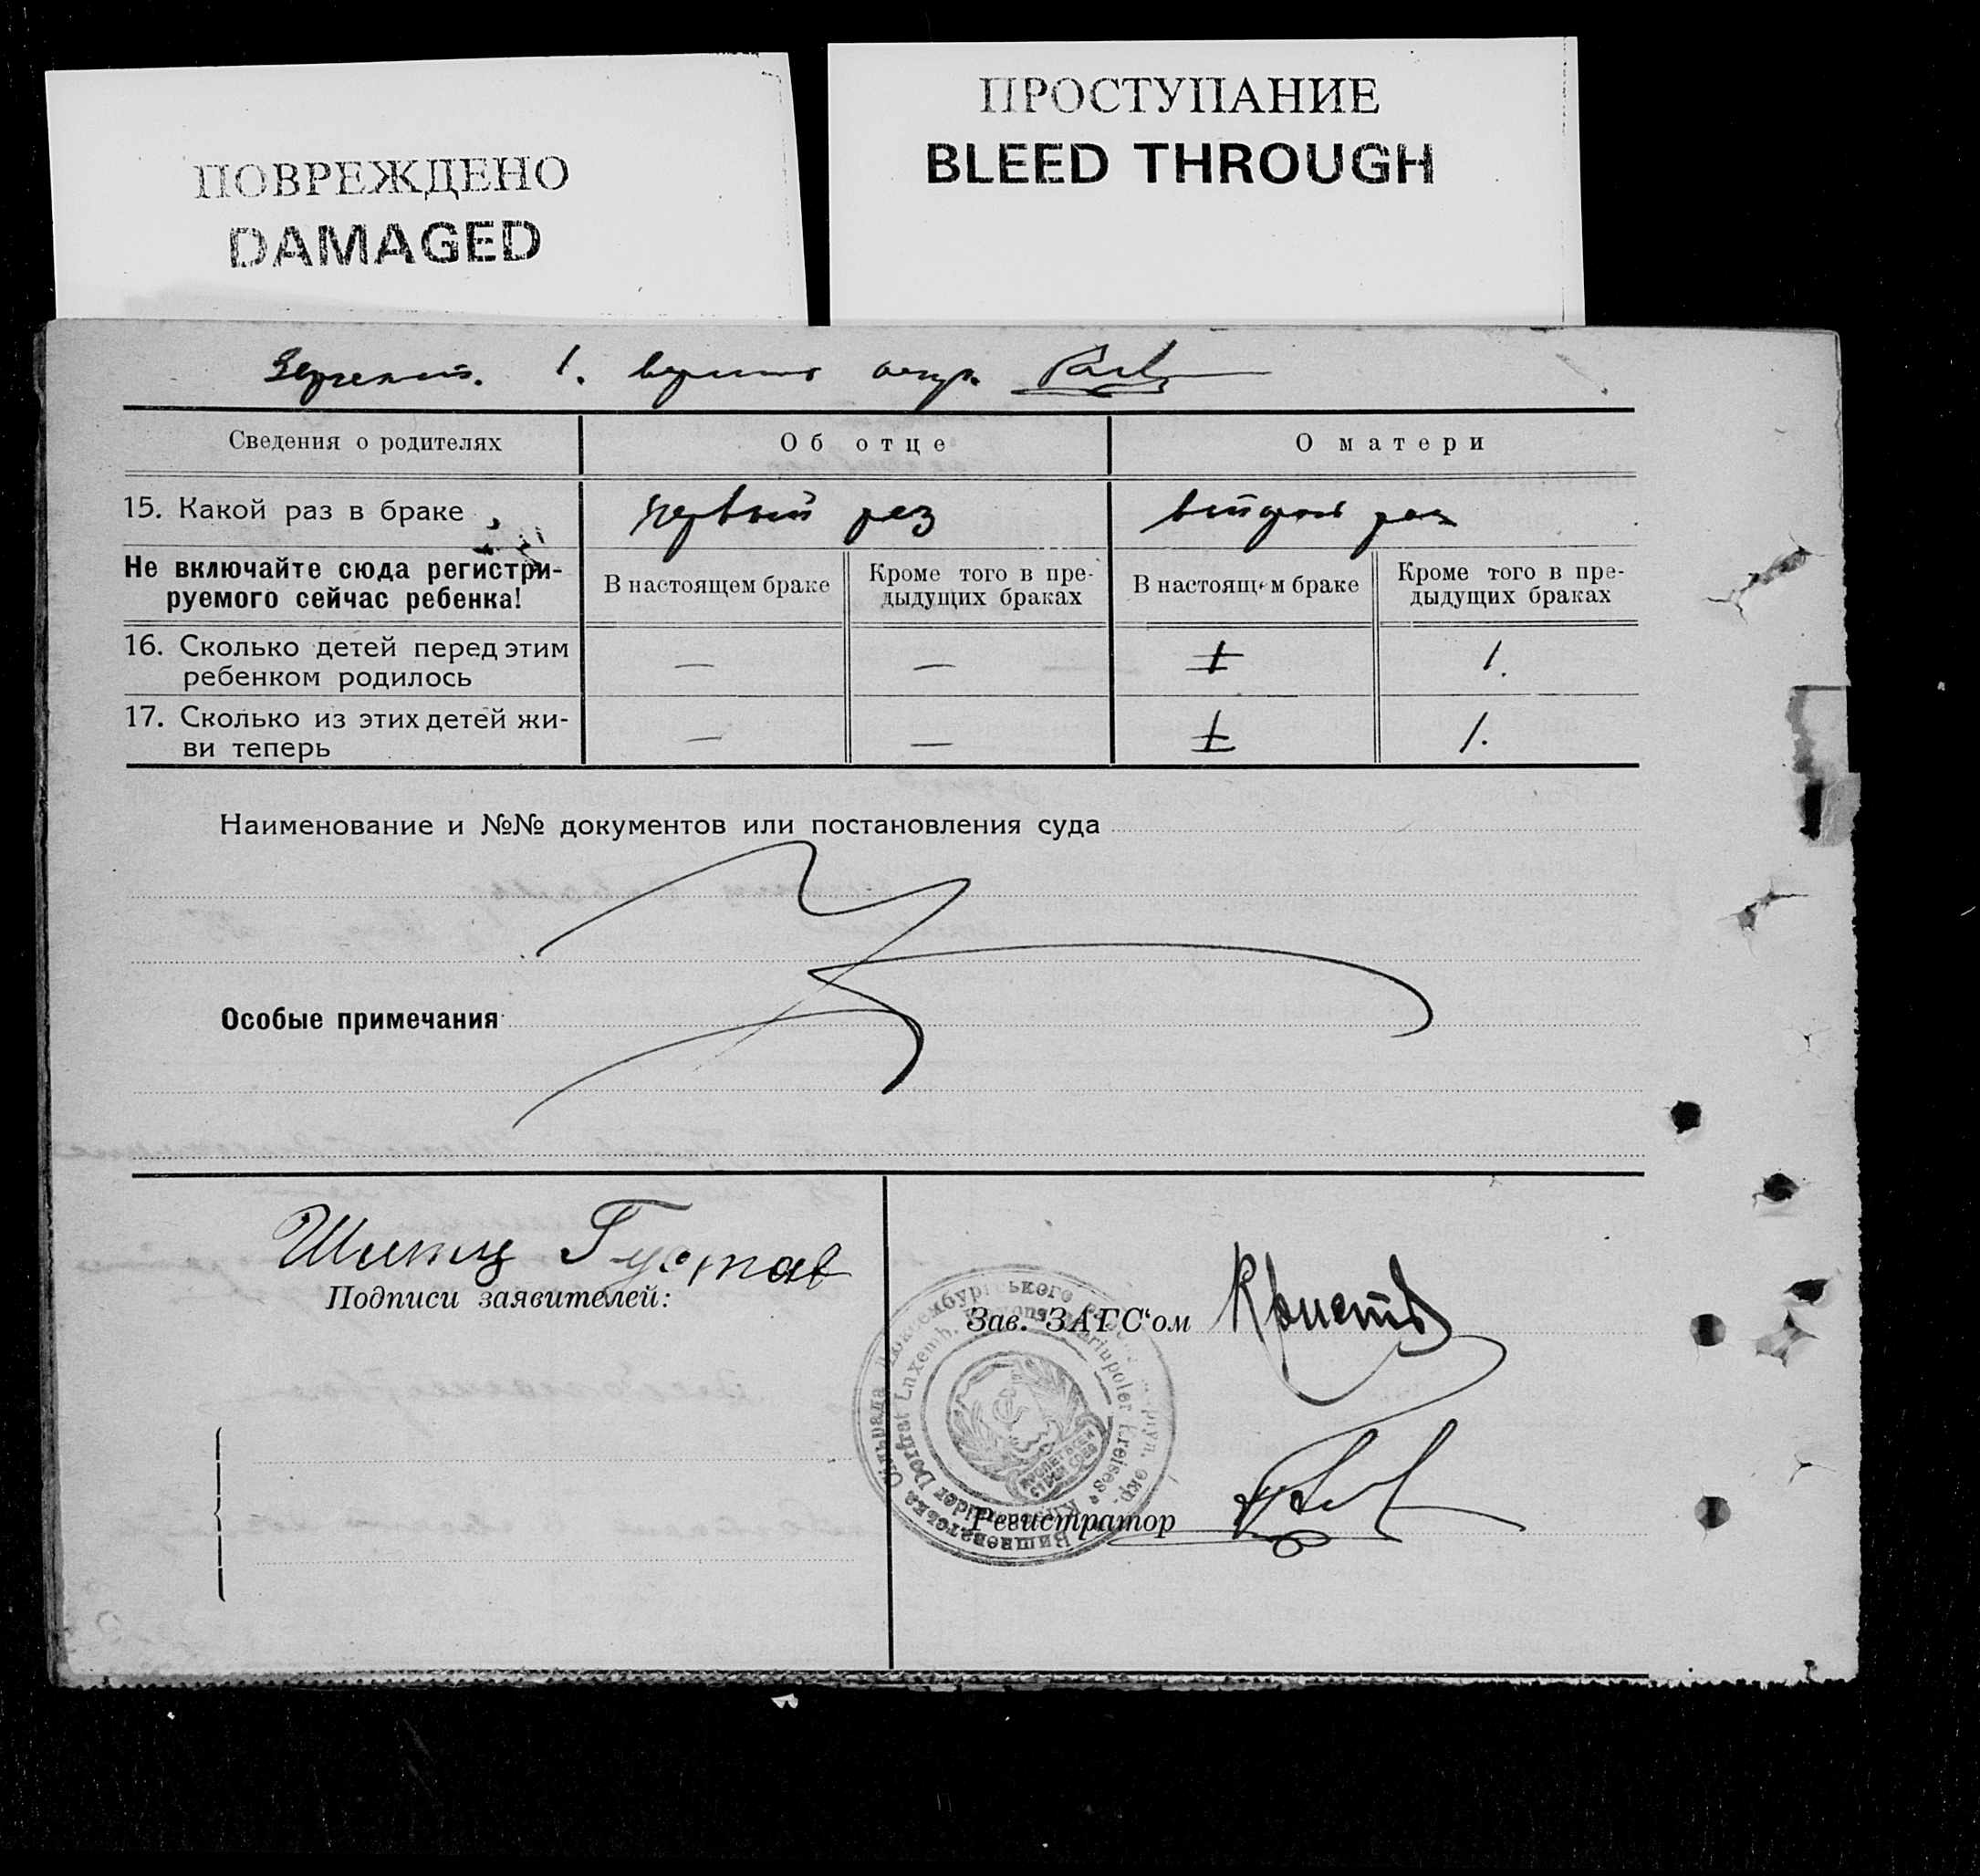 ПОВРЕЖДЕНО
DAMAGED
ПРОСТУПАНИЕ
BLEED THROUGH
1.
Сведения о родителях
Об отце
О матери
15. Какой раз в браке
первый раз
второй раз
Не включайте сюда регистри-
руемого сейчас ребенка!
В настоящем браке
Кроме того в пре-
дыдущих браках
В настоящем браке
Кроме того в пре-
дыдущих браках
16. Сколько детей перед этим
ребенком родилось
—
—
1.
17. Сколько из этих детей жи-
ви теперь
—
—
1.
Наименование и №№ документов или постановления суда
Особые примечания
Шинц Густав
Подписи заявителей:
Зав. ЗАГС'ом
Регистратор